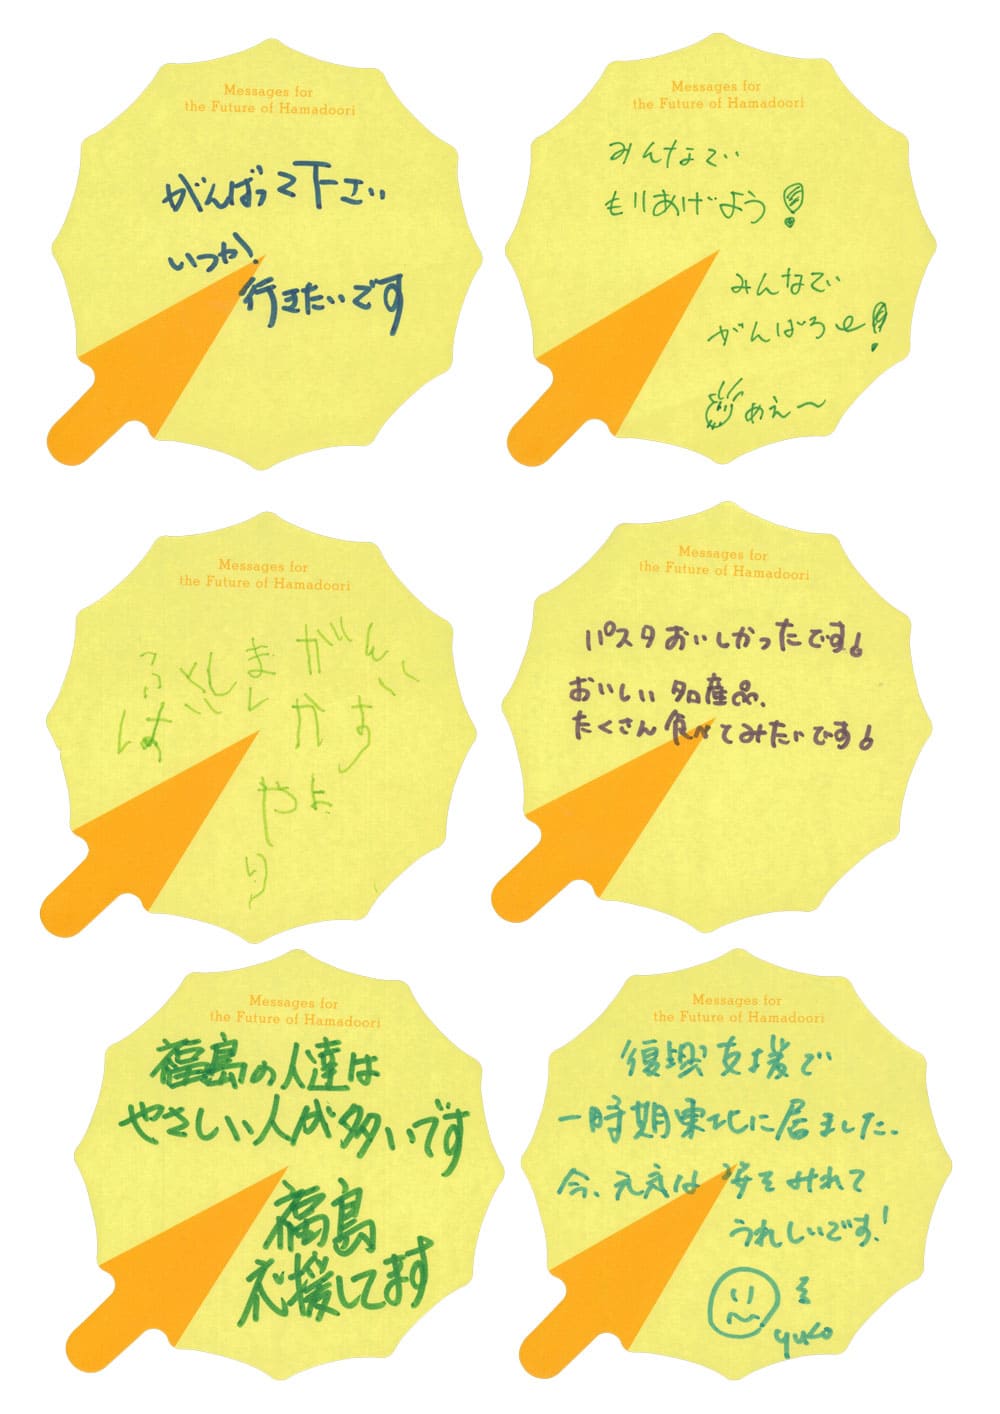 Messages for
the Future of Hamadoori
がんばって下さい
いつか!
行きたいです
Messages for
the Future of Hamadoori
みんなで
もりあげよう!
みんなで
がんばろー!
めぇ～
Messages for
the Future of Hamadoori
ふくしまがん
ば
かす
やよ
り
Messages for
the Future of Hamadoori
パスタおいしかったです!
おいしい名産品、
たくさん食べてみたいです!
Messages for
the Future of Hamadoori
福島の人達は
やさしい人が多いです
福島
応援してます
Messages for
the Future of Hamadoori
復興支援で
一時期東北に居ました。
今、元気な姿をみれて
うれしいです!
yuko